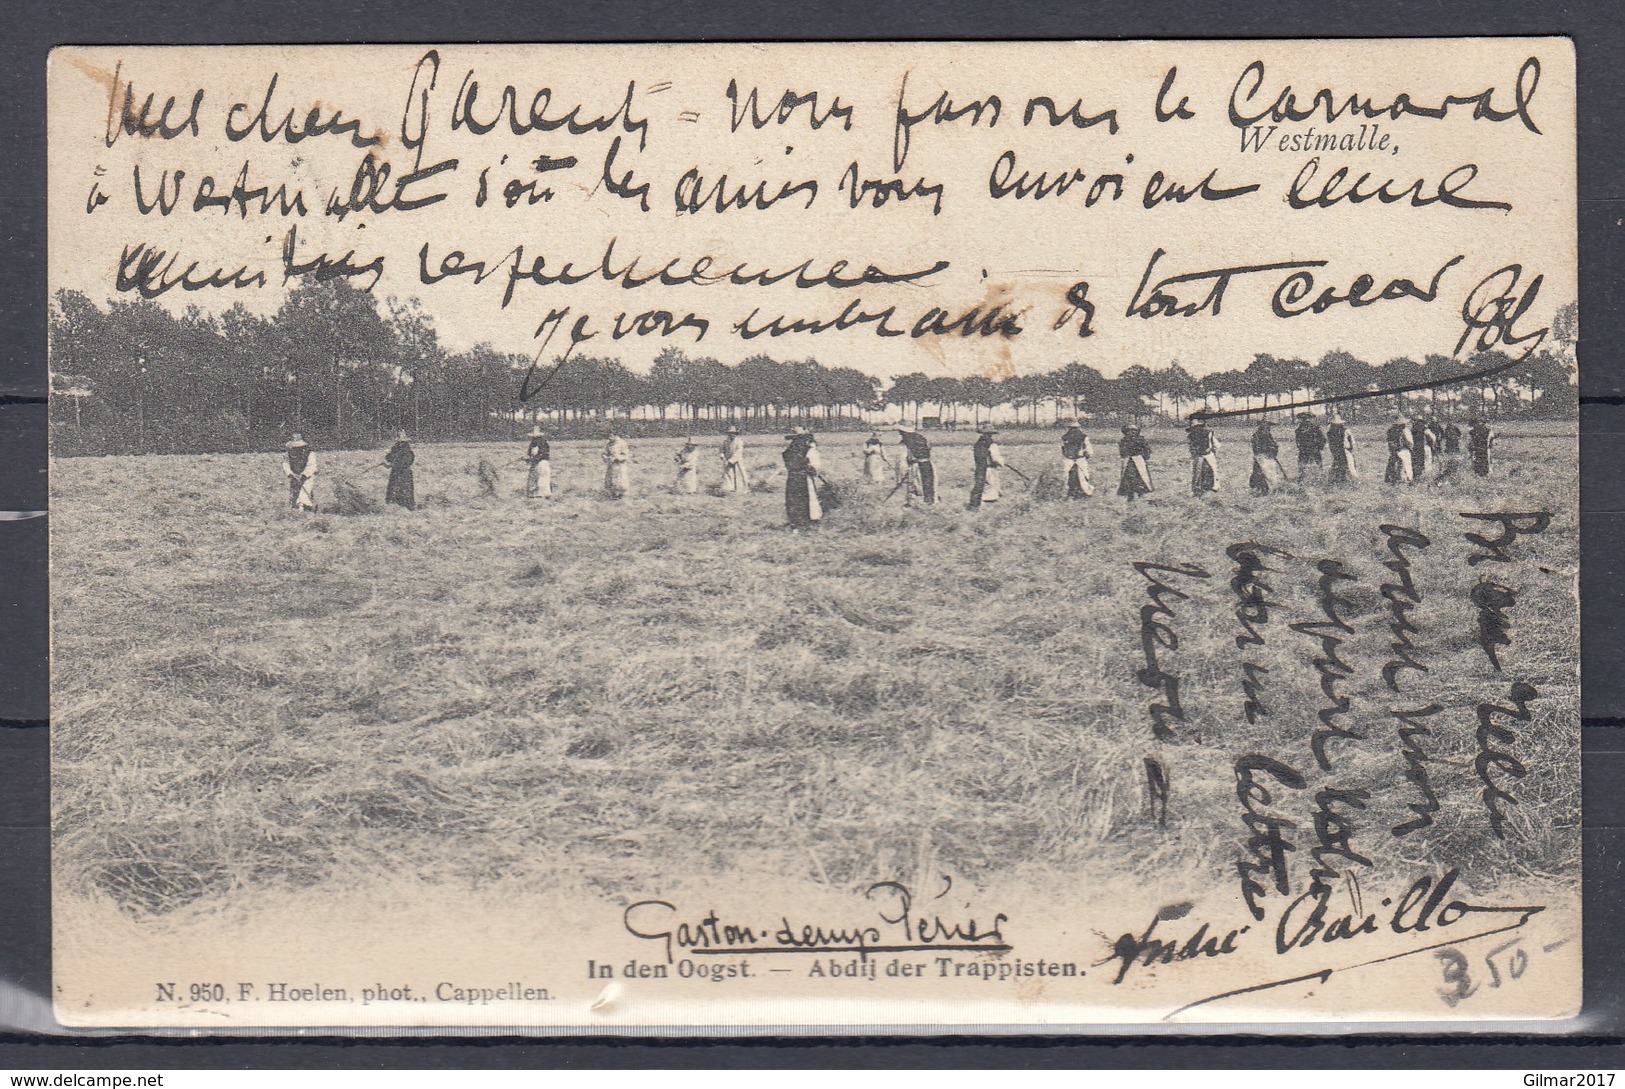 Mes chers Parents = nous passons le Carnaval
Westmalle,
à Westmalle d'où les amis vous envoient leurs
amitiés respectueuses.
Je vous embrasse de tout coeur
Pol
Rien reçu
avant mon
départ
bonne lettre
Merci =
Gaston. Périer
André Baillo
In den Oogst. — Abdij der Trappisten.
N. 950, F. Hoelen, phot., Cappellen.
350-
delcampe.net
Gilmar2017